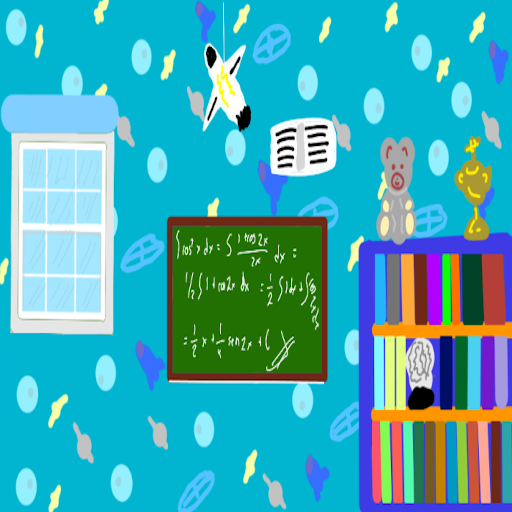 ∫cos²x dx = ∫ 1+cos2x / 2x dx =
1/2 ∫ 1+cos2x dx = 1/2 ∫1dx+∫cos2x2x
= 1/2 x + 1/4 sen2x + C